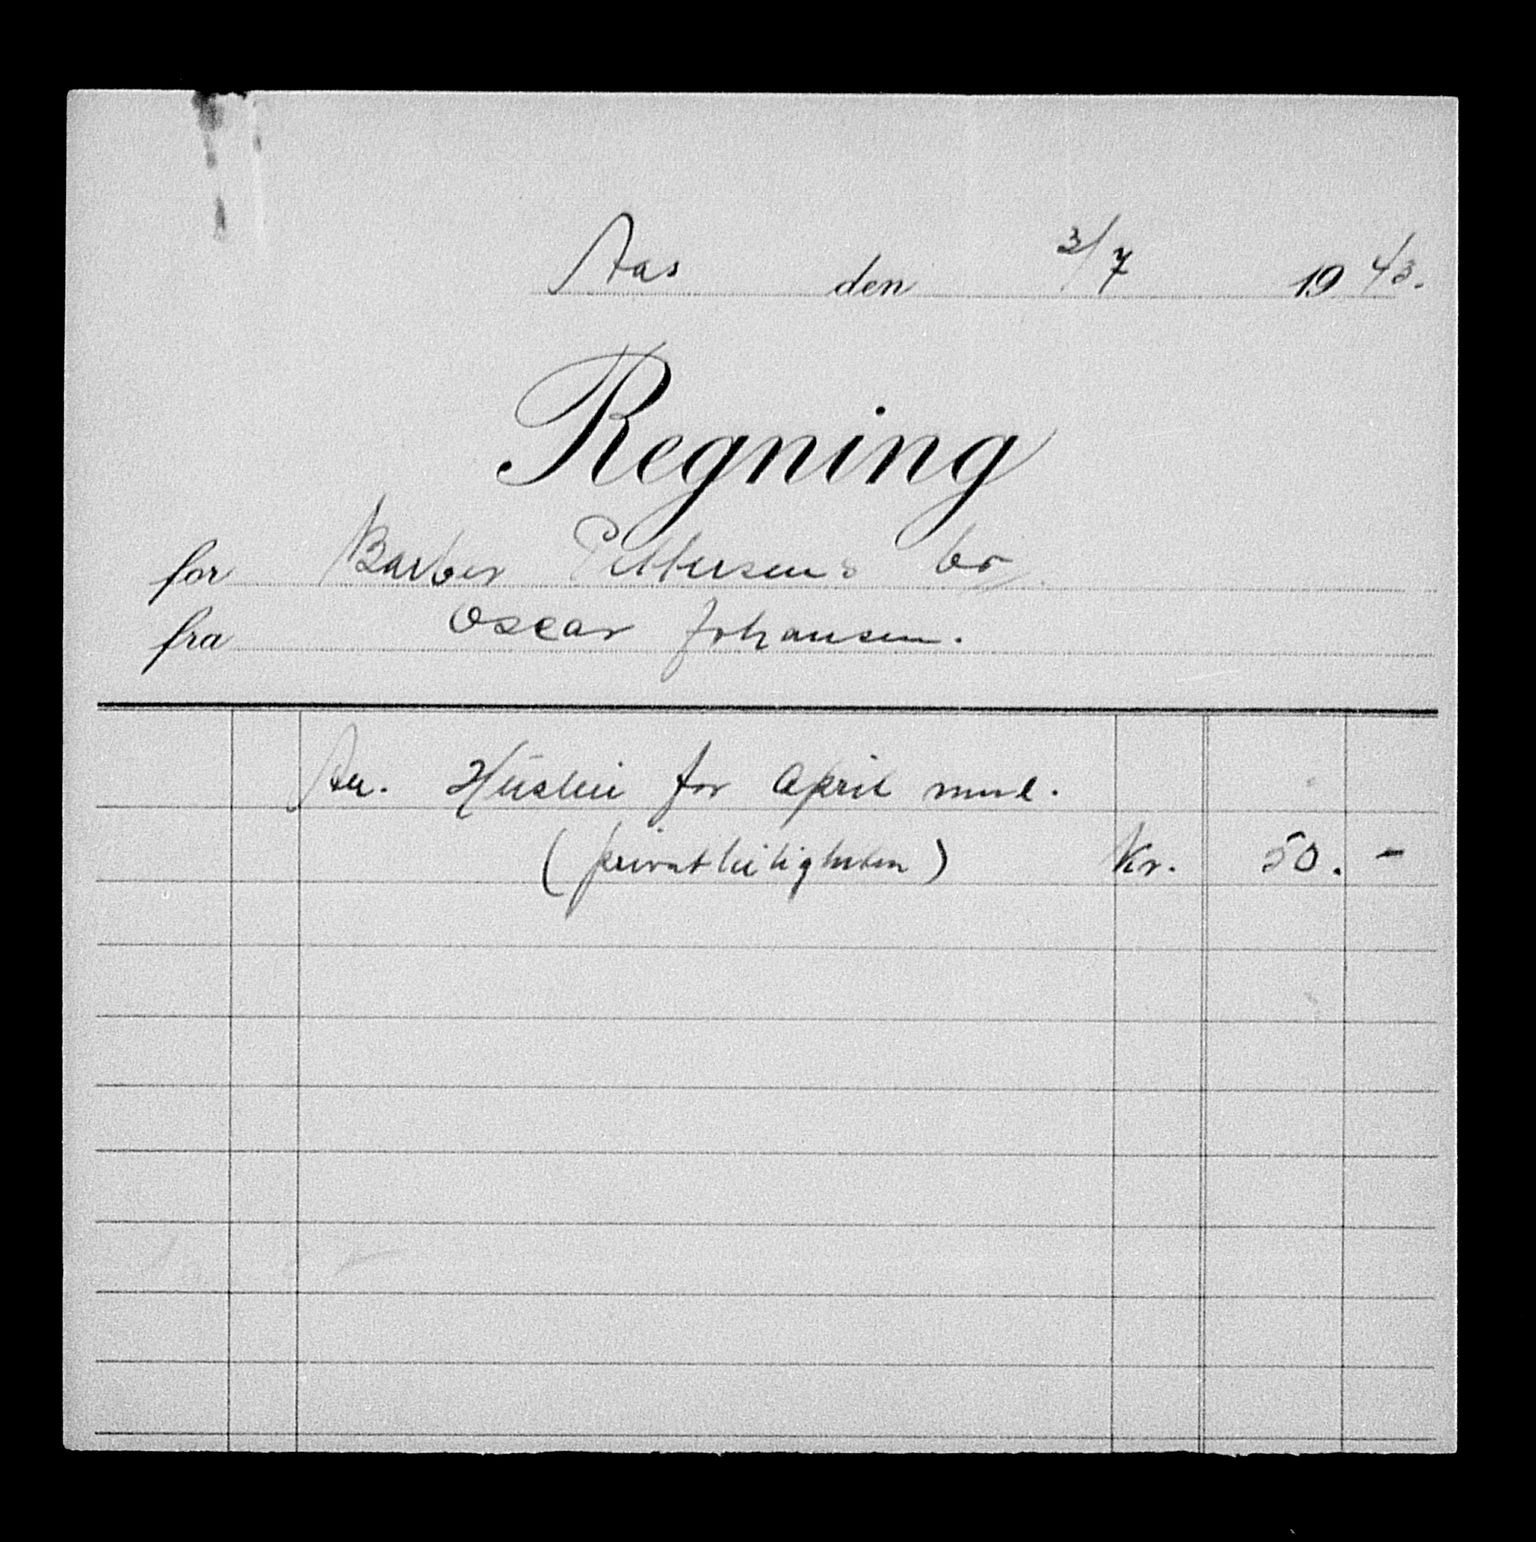 Aas den 3/7 1943.
Regning
for Barber Pettersens bo.
fra Oscar Johansen.
An. Husleie for April mnd.
(privatleiligheten) Kr. 50.-